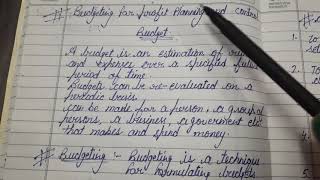 # Budgeting for Profit Planning and control
Budget
A budget is an estimation of
and expenses over a specified future
period of time.
Budgets can be re-evaluated on a
periodic basis.
can be made for a person, a group of
persons, a business, a government etc
that makes and spend money.
# Budgeting :- Budgeting is a technique
for formulating budgets
1.
2.
3.
4.
5.